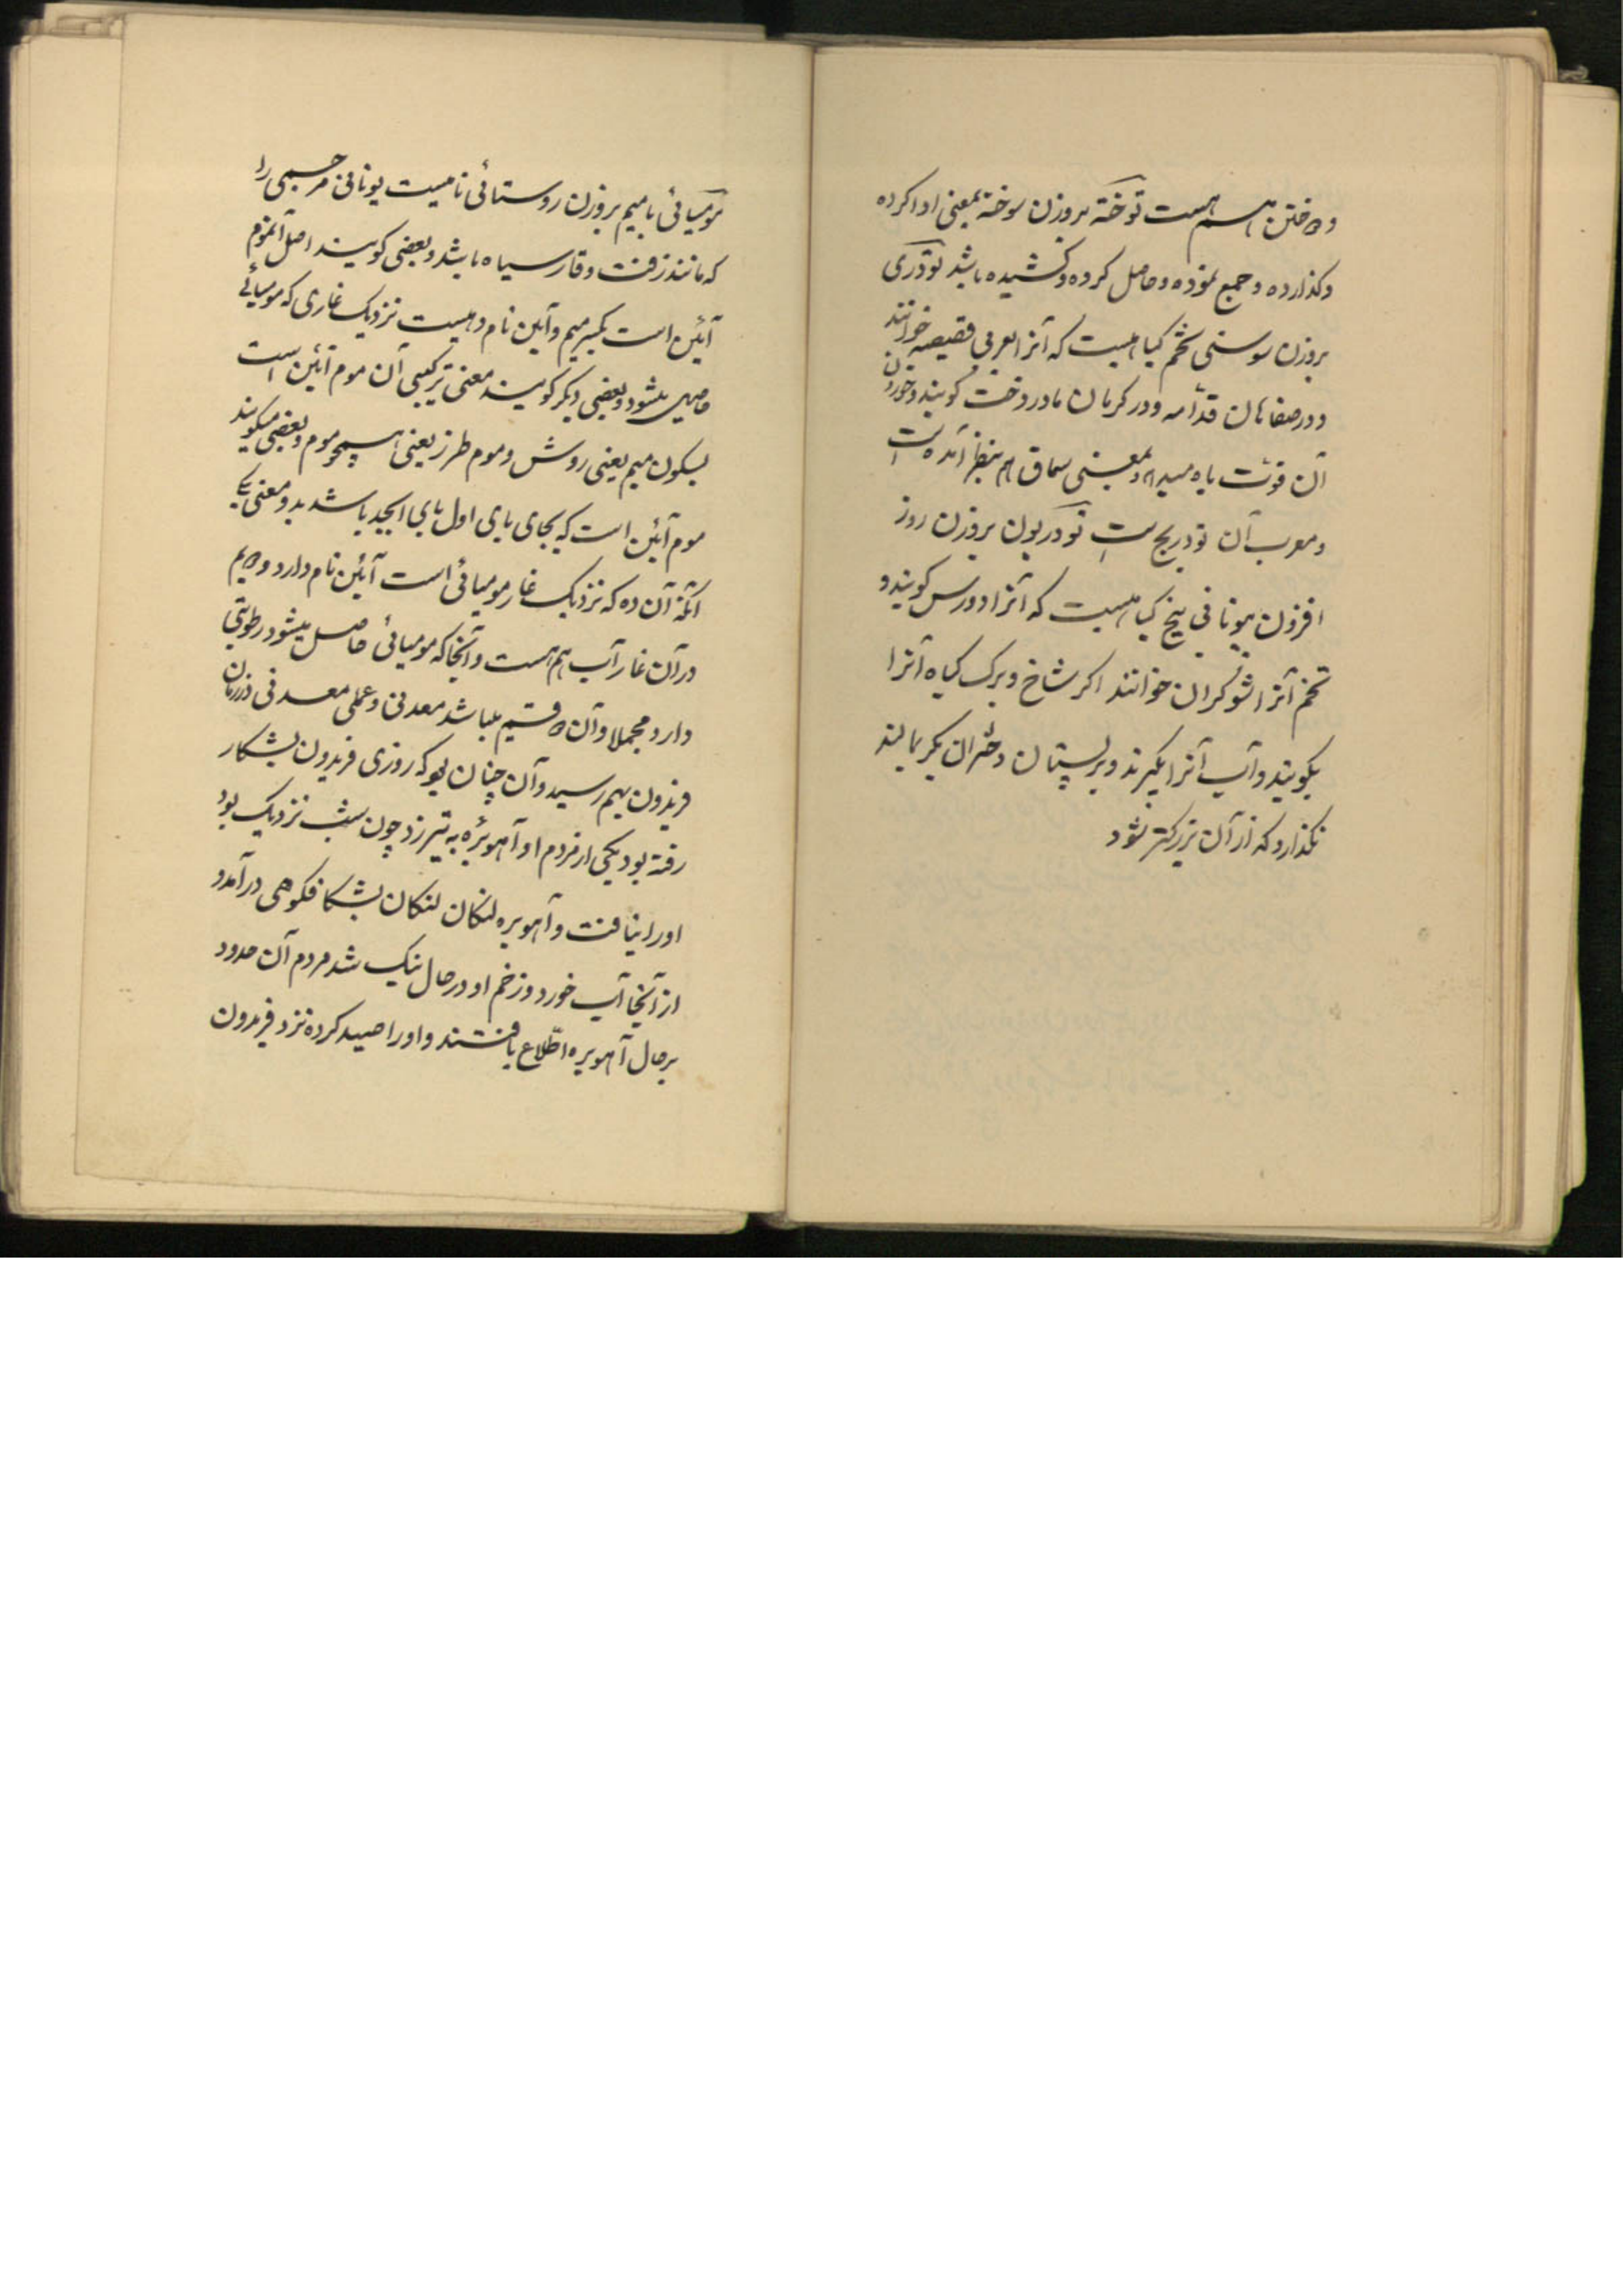 و دوختن هم هست توخته بروزن سوخته بمعنی ادا کرده
و کذارده و جمع نموده و حاصل کرده و کشیده باشد تودری
بروزن سوسنی تخم کیاهیست که آنرا بعربی قصیصه خوانند
و در صفاهان قدامه و در کرمان مادردخت کویند و خوردن
آن قوت باه میدهد و بمعنی سماق هم بنظر آمده است
و معرب آن تودریج است تودریون بروزن روز
افزون بیونانی بیخ کیاهیست که آنرا دورس کویند و
تخم آنرا شوکران خوانند اکر شاخ و برک کیاه آنرا
بکوبند و آب آنرا بکیرند و بر پستان دختران بکر بمالند
نکذارد که از آن بزرکتر شود
مومیائی با میم بروزن روستائی نامیست یونانی مر جسمی را
که مانند زفت و قار سیاه باشد و بعضی کویند اصل آنموم
آئین است بکسر میم و آیین نام دهیست نزدیک غاری که مومیائی
حاصل میشود و بعضی دیکر کویند معنی ترکیبی آن موم آئین است
بسکون میم یعنی روش و موم طرز یعنی همچو موم و بعضی میکویند
موم آئین است که بجای یای اول بای ابجد باشد بدو معنی یکی
آنکه آن ده که نزدیک غار مومیائی است آئین نام دارد دویم
در آن غار آب هم هست و آنجا که مومیائی حاصل میشود رطوبتی
دارد مجملا و آن دو قسم میباشد معدنی و عملی معدنی در زمان
فریدون بهم رسید و آن چنان بو که روزی فریدون بشکار
رفته بود یکی از مردم او آهوبره به تیر زد چون شب نزدیک بود
او را نیافت و آهوبره لنکان لنکان بشکاف کوهی درآمد و
از آنجا آب خورد و زخم او در حال نیک شد مردم آن حدود
بر حال آهوبره اطلاع یافتند و او را صید کرده نزد فریدون